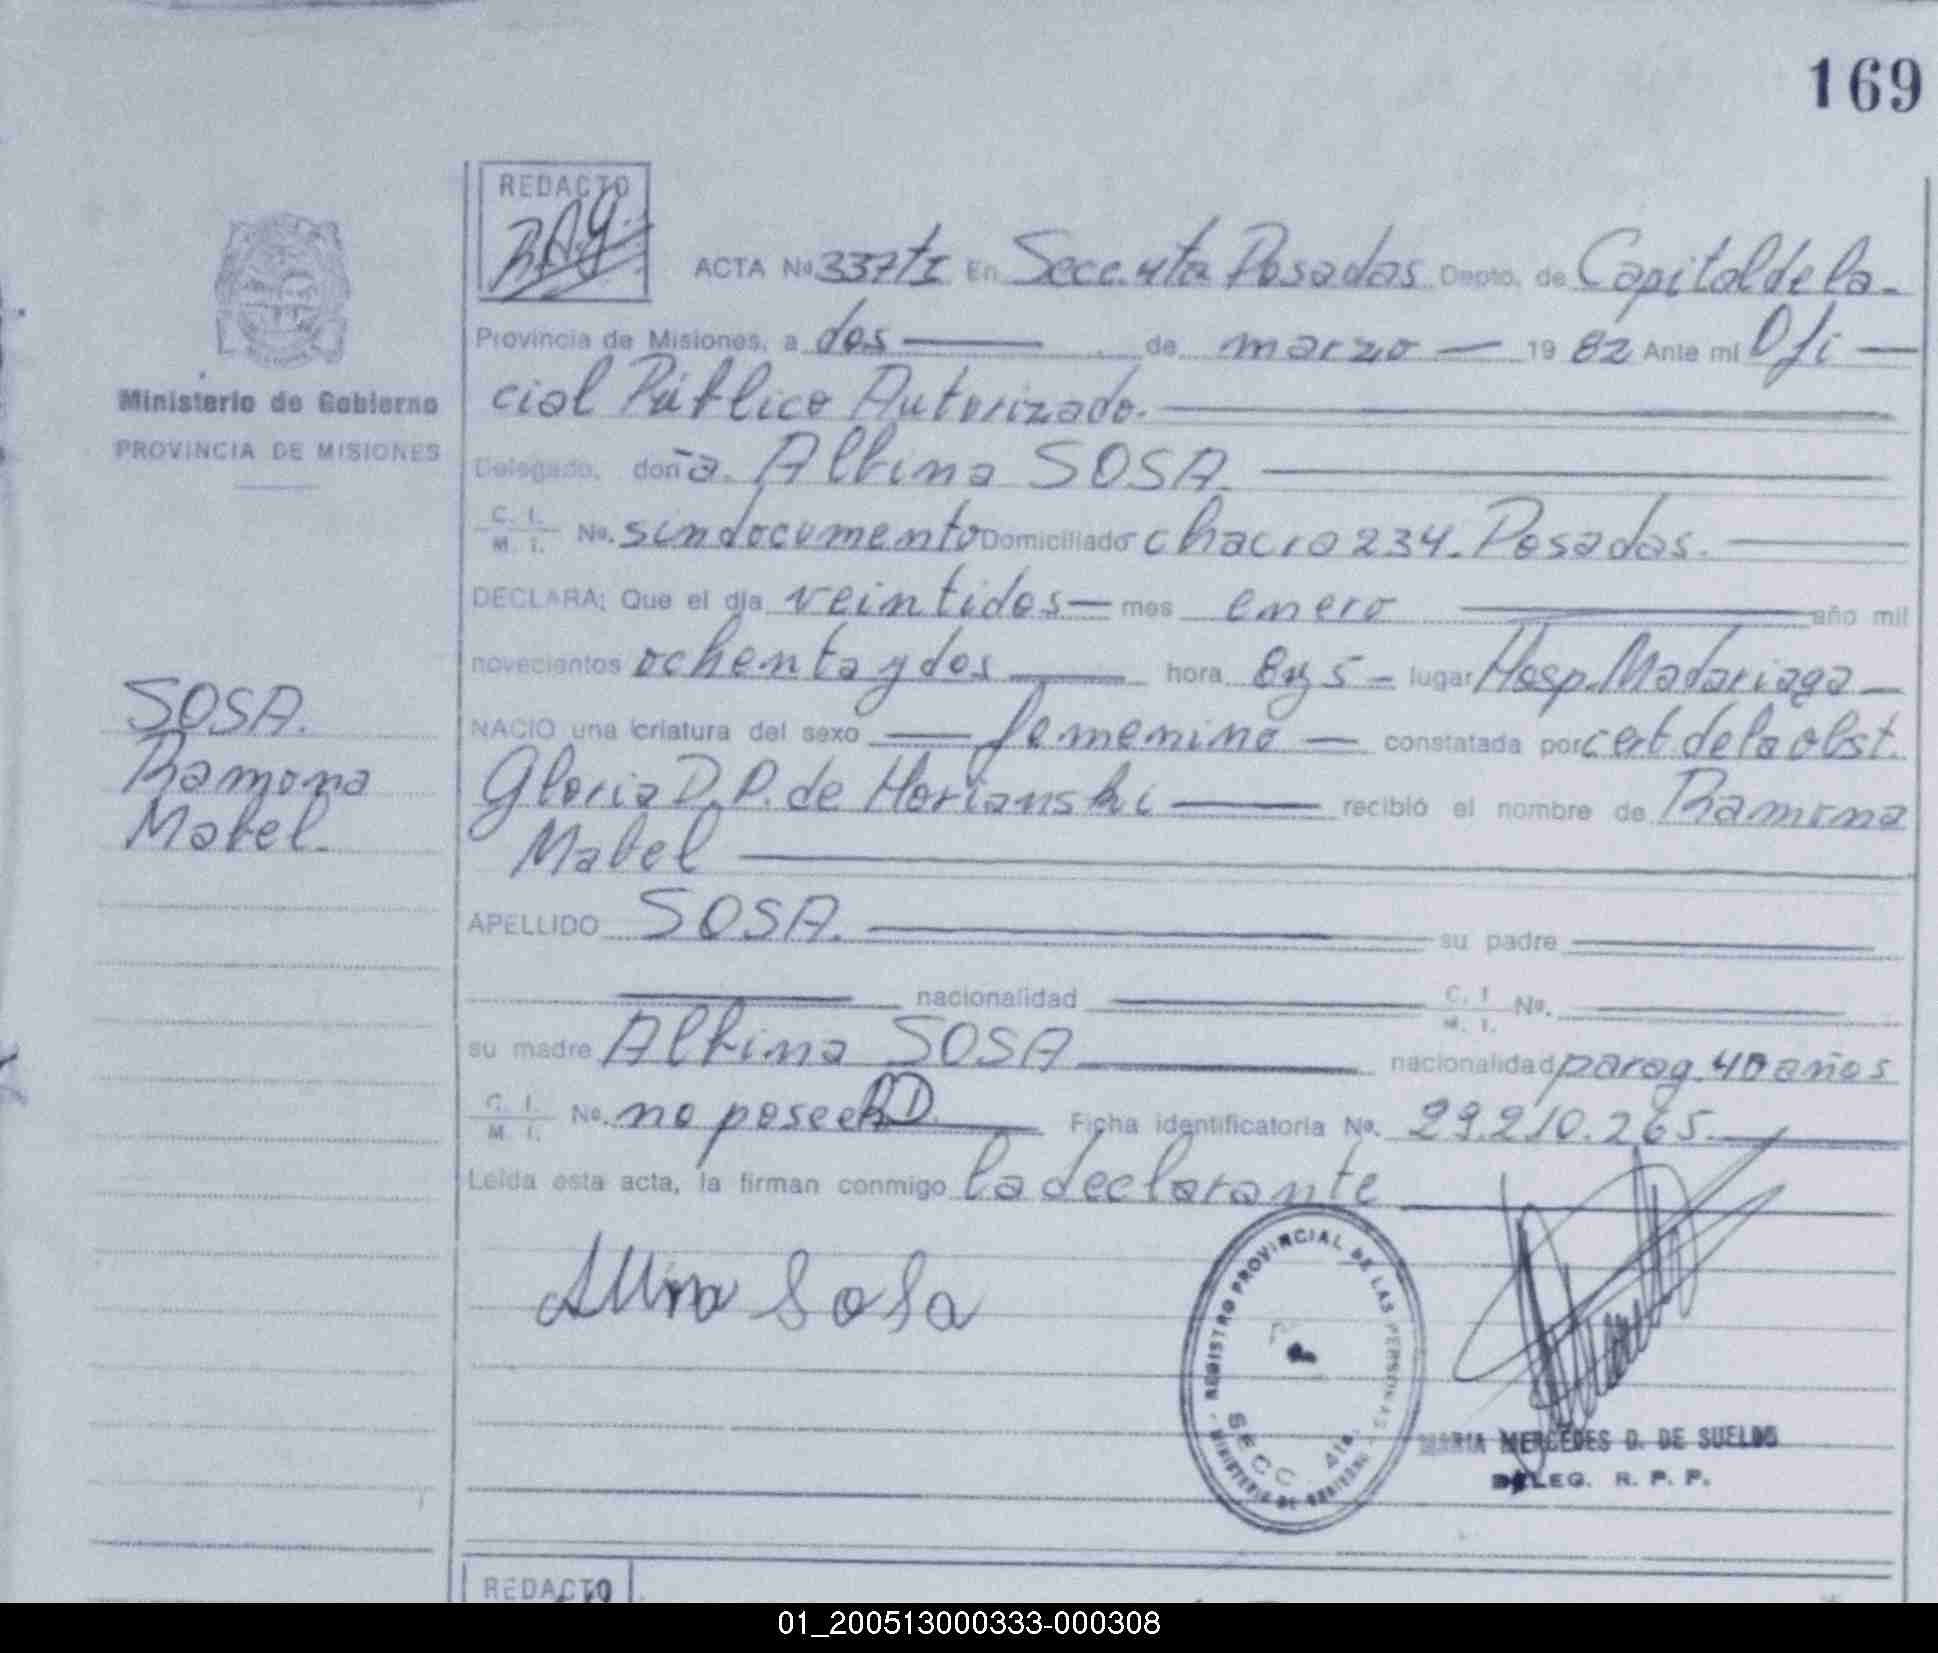 169
REDACTO
R.A.G.
ACTA Nº 337 tI En Secc. 4ta Posadas Depto. de Capital de la
Provincia de Misiones, a dos de marzo 1982 Ante mí Ofi
cial Público Autorizado.
Delegado, doña. Albina SOSA.
C. I. M. I. No. sin documento Domiciliado chacra 234. Posadas.
DECLARA: Que el día veintidos mes enero año mil
novecientos ochenta y dos hora 8 y 5 lugar Hosp. Madariaga
NACIO una criatura del sexo femenino constatada por cert. de la obst.
Gloria D. P. de Horianski recibió el nombre de Ramona
Mabel
APELLIDO SOSA. su padre
nacionalidad C. I. M. I. No.
su madre Albina SOSA nacionalidad parag. 40 años
C. I. M. I. No. no posee Ficha identificatoria No. 29.210.265.
Leída esta acta, la firman conmigo la declarante
Albina Sosa
REGISTRO PROVINCIAL DE LAS PERSONAS
MINISTERIO DE GOBIERNO
SECC. 4ta.
MARIA MERCEDES D. DE SUELDO
DELEG. R. P. P.
Ministerio de Gobierno
PROVINCIA DE MISIONES
SOSA.
Ramona
Mabel.
REDACTO
01_200513000333-000308